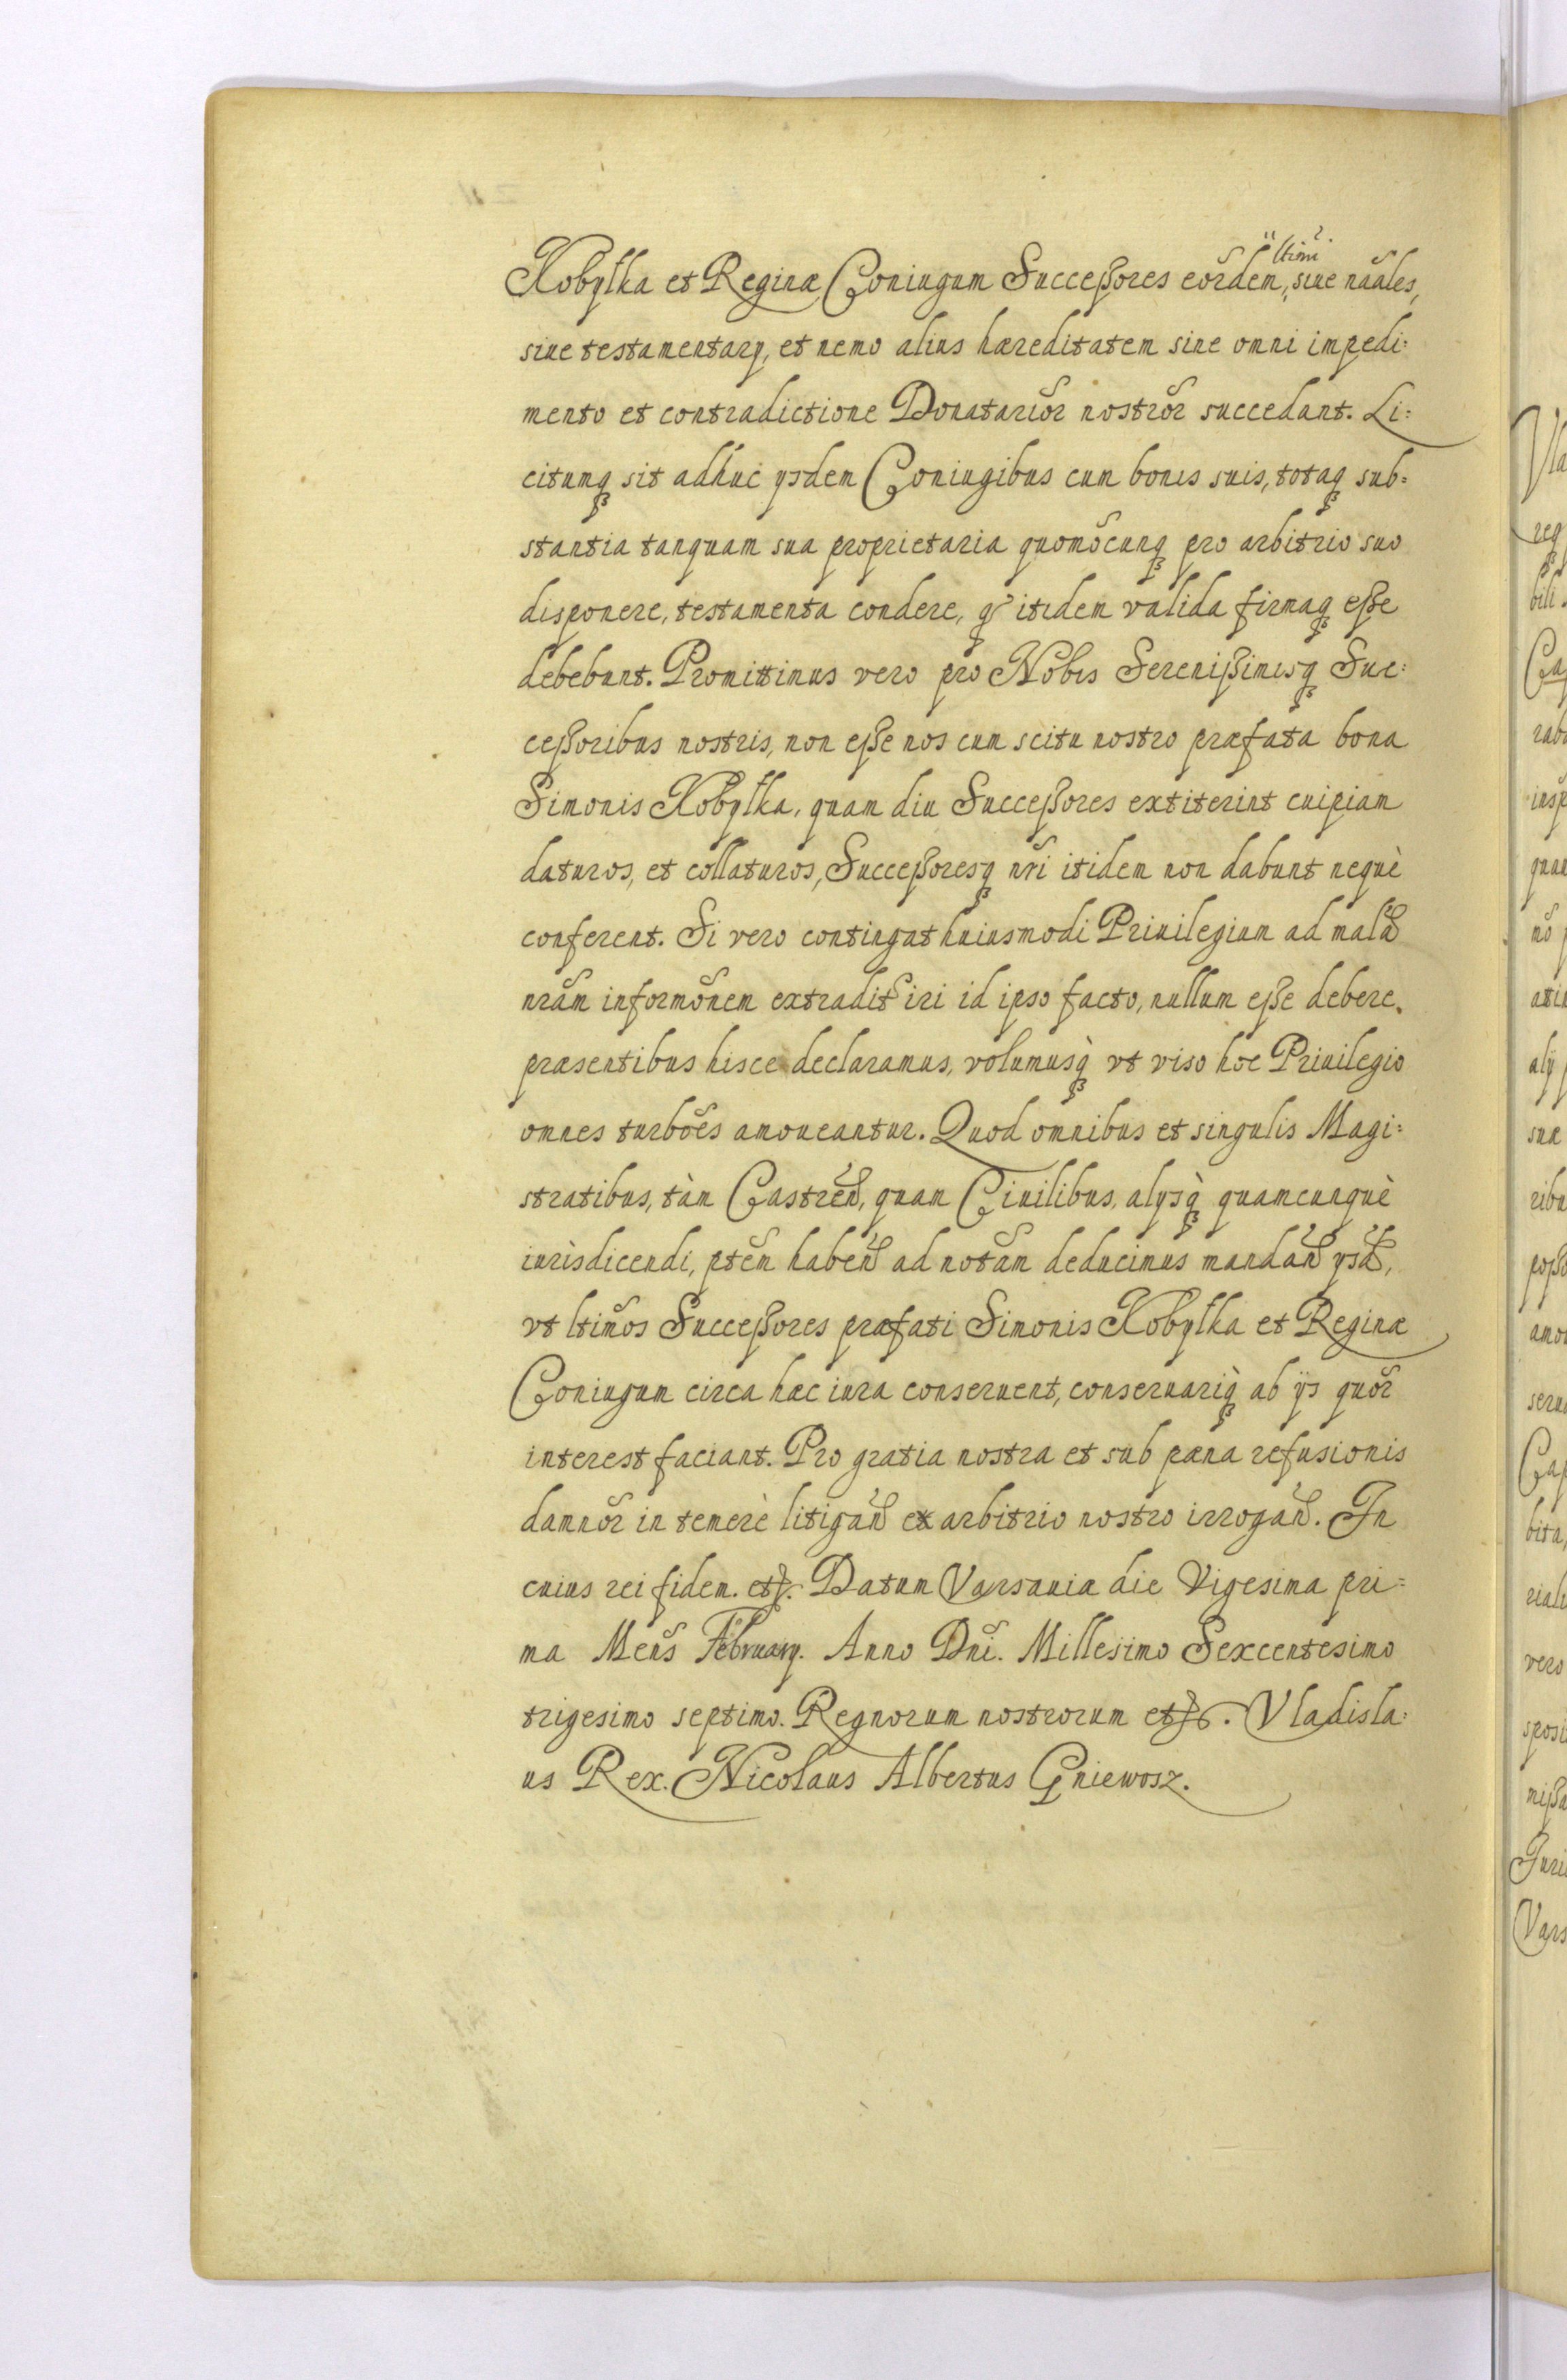 Kobyłka et Reginæ Coniugum Succeßores eor̃dem, ltimi siue nãales,
siue testamentarÿ, et nemo alius hæreditatem sine omni impedi:
mento et contradictione Donatariõr nostrõr succedant. Li:
citumq₃ sit adhuc ÿsdem Coniugibus cum bonis suis, totaq₃ sub:
stantia tanquam sua proprietaria quomõcunq₃ pro arbitrio suo
disponere, testamenta condere, q̃ itidem valida firmaq₃ eße
debebunt. Promittimus vero pro Nobis Serenißimisq₃ Suc:
ceßoribus nostris, non eße nos cum scitu nostro præfata bona
Simonis Kobyłka, quam diu Succeßores extiterint cuipiam
daturos, et collaturos, Succeßoresq₃ nr̃i itidem non dabunt nequè
conferent. Si vero contingat huiusmodi Priuilegium ad malã
nrãm informõnem extradit̃ iri id ipso facto, nullum eße debere.
præsentibus hisce declaramus, volumusq̀₃ vt viso hoc Priuilegio
omnes turbões amoueantur. Quod omnibus et singulis Magi:
stratibus, tàm Castreñ, quam Ciuilibus, alÿsq̀₃ quamcunquè
iurisdicendi, ptẽm habeñ ad notãm deducimus mandañ ÿsd̃,
vt ltimõs Succeßores præfati Simonis Kobyłka et Reginæ
Coniugum circa hæc iura conseruent, conseruariq̀₃ ab ÿs quõr
interest faciant. Pro gratia nostra et sub pæna refusionis
damnõr in temerè litigañ ex arbitrio nostro irrogañ. In
cuius rei fidem. etc. Datum Varsauiæ die Vigesima pri:
ma Meñs Februarÿ. Anno Dñi. Millesimo Sexcentesimo
trigesimo septimo. Regnorum nostrorum etc. Vladisla:
us Rex. Nicolaus Albertus Gniewosz.